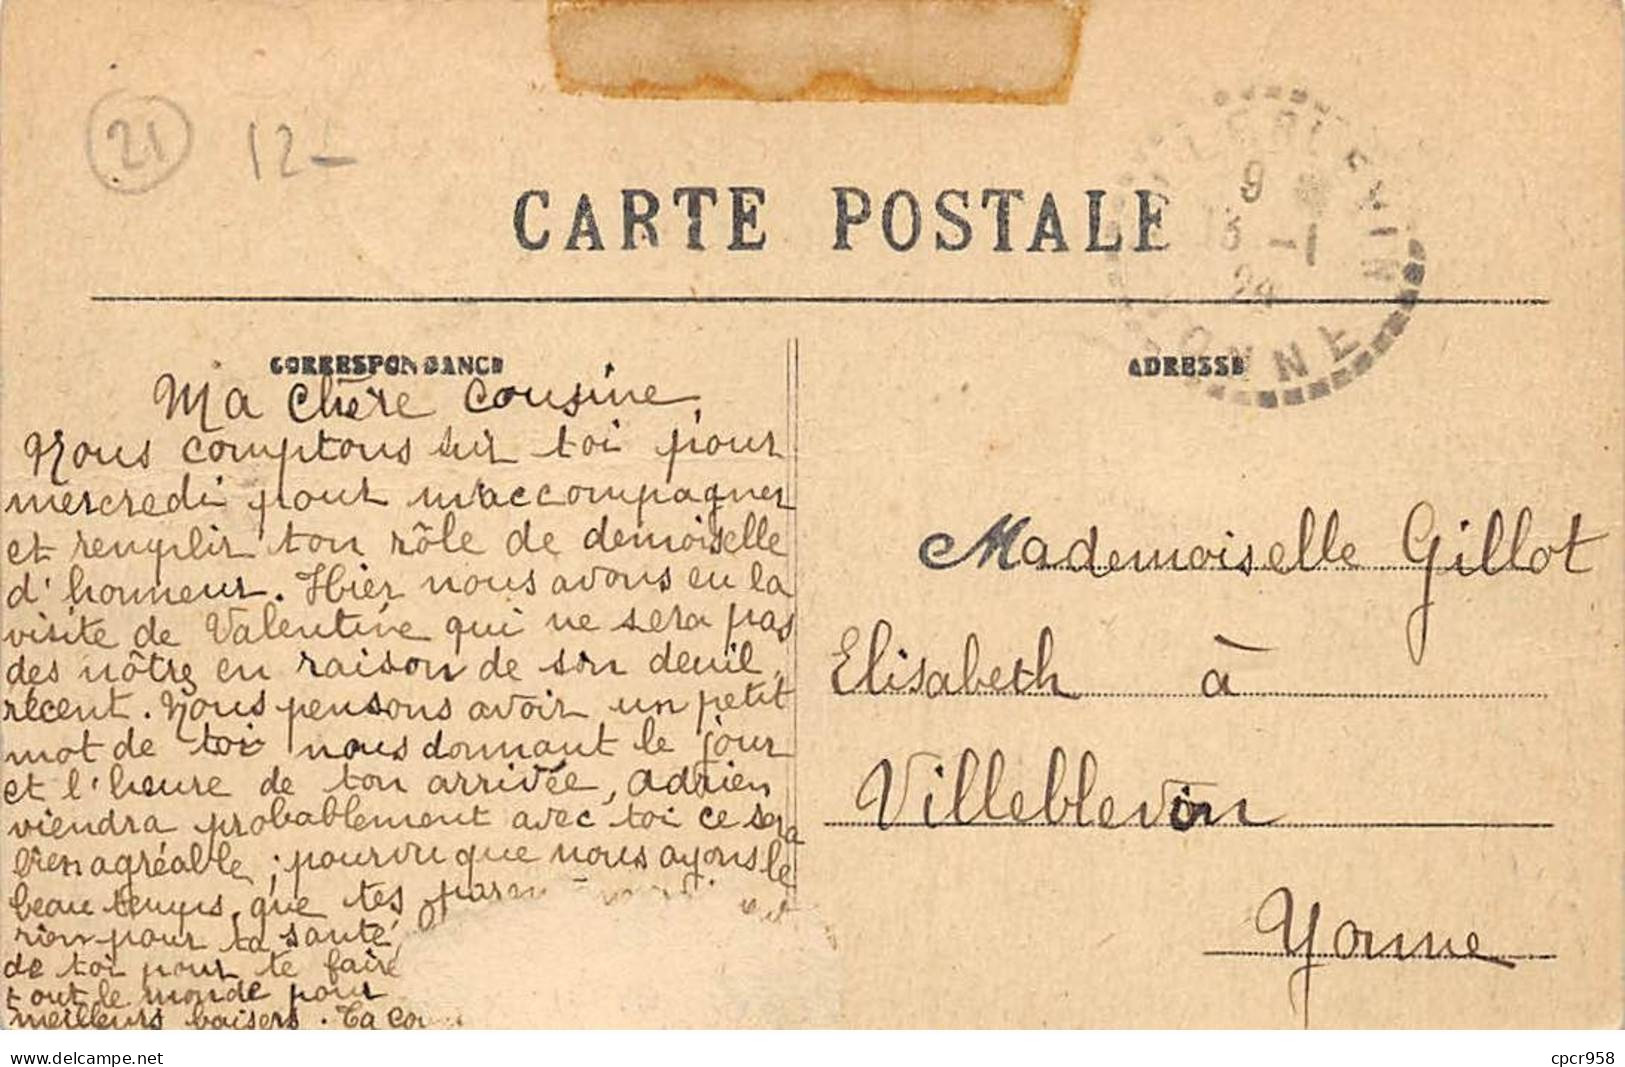 21 12-
CARTE POSTALE
9
13 -1
24
YONNE
CORRESPONDANCE
ADRESSE
Ma chère cousine,
Nous comptons sur toi pour
mercredi pour m'accompagner
et remplir ton rôle de demoiselle
d'honneur. Hier nous avons eu la
visite de Valentine qui ne sera pas
des nôtre en raison de son deuil,
récent. Nous pensons avoir un petit
mot de toi nous donnant le jour
et l'heure de ton arrivée, adrien
viendra probablement avec toi ce sera
bien agréable, pourvu que nous ayons le
beau temps, que tes
rien pour ta santé,
de toi pour te faire
tout le monde pour
meilleurs baisers. Ta
Mademoiselle Gillot
Elisabeth à
Villeblevin
Yonne
delcampe.net
cpcr958